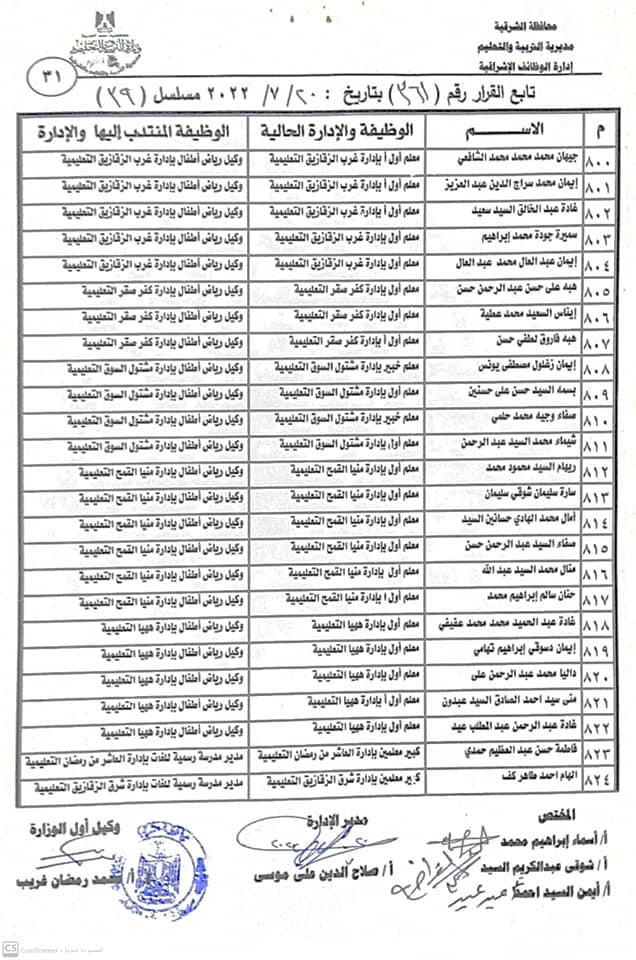 محافظة الشرقية
مديرية التربية والتعليم
إدارة الوظائف الإشرافية
٣١
تابع القرار رقم (٣٦١) بتاريخ : ٢٠ / ٧ / ٢٠٢٢ مسلسل (٣٩)
م الاســـــم الوظيفة والإدارة الحالية الوظيفة المنتدب إليها والإدارة
٨٠٠ جيهان محمد محمد محمد الشافعي معلم أول أ بإدارة غرب الزقازيق التعليمية وكيل رياض أطفال بإدارة غرب الزقازيق التعليمية
٨٠١ إيمان محمد سراج الدين عبد العزيز معلم أول أ بإدارة غرب الزقازيق التعليمية وكيل رياض أطفال بإدارة غرب الزقازيق التعليمية
٨٠٢ غادة عبد الخالق السيد سعيد معلم أول أ بإدارة غرب الزقازيق التعليمية وكيل رياض أطفال بإدارة غرب الزقازيق التعليمية
٨٠٣ سميرة جودة محمد إبراهيم معلم أول بإدارة غرب الزقازيق التعليمية وكيل رياض أطفال بإدارة غرب الزقازيق التعليمية
٨٠٤ إيمان عبد العال محمد عبد العال معلم أول بإدارة غرب الزقازيق التعليمية وكيل رياض أطفال بإدارة غرب الزقازيق التعليمية
٨٠٥ هبه على حسن عبد الرحمن حسن معلم أول بإدارة كفر صقر التعليمية وكيل رياض أطفال بإدارة كفر صقر التعليمية
٨٠٦ إيناس السعيد محمد عطية معلم أول بإدارة كفر صقر التعليمية وكيل رياض أطفال بإدارة كفر صقر التعليمية
٨٠٧ هبه فاروق لطفي حسن معلم أول أ بإدارة كفر صقر التعليمية وكيل رياض أطفال بإدارة كفر صقر التعليمية
٨٠٨ إيمان زغلول مصطفى يونس معلم خبير بإدارة مشتول السوق التعليمية وكيل رياض أطفال بإدارة مشتول السوق التعليمية
٨٠٩ بسمه السيد حسن على حسنين معلم أول بإدارة مشتول السوق التعليمية وكيل رياض أطفال بإدارة مشتول السوق التعليمية
٨١٠ صفاء وجيه محمد حلمي معلم خبير بإدارة مشتول السوق التعليمية وكيل رياض أطفال بإدارة مشتول السوق التعليمية
٨١١ شيماء محمد السيد عبد الرحمن معلم أول بإدارة مشتول السوق التعليمية وكيل رياض أطفال بإدارة مشتول السوق التعليمية
٨١٢ ريهام السيد محمود محمد معلم أول بإدارة منيا القمح التعليمية وكيل رياض أطفال بإدارة منيا القمح التعليمية
٨١٣ سارة سليمان شوقي سليمان معلم أول بإدارة منيا القمح التعليمية وكيل رياض أطفال بإدارة منيا القمح التعليمية
٨١٤ أمال محمد الهادي حسانين السيد معلم أول بإدارة منيا القمح التعليمية وكيل رياض أطفال بإدارة منيا القمح التعليمية
٨١٥ صفاء السيد عبد الرحمن حسن معلم أول بإدارة منيا القمح التعليمية وكيل رياض أطفال بإدارة منيا القمح التعليمية
٨١٦ منال محمد السيد عبد الله معلم أول بإدارة منيا القمح التعليمية وكيل رياض أطفال بإدارة منيا القمح التعليمية
٨١٧ حنان سالم إبراهيم محمد معلم أول أ بإدارة منيا القمح التعليمية وكيل رياض أطفال بإدارة منيا القمح التعليمية
٨١٨ غادة عبد الحميد محمد محمد عفيفي معلم أول بإدارة ههيا التعليمية وكيل رياض أطفال بإدارة ههيا التعليمية
٨١٩ إيمان دسوقي إبراهيم تهامي معلم أول بإدارة ههيا التعليمية وكيل رياض أطفال بإدارة ههيا التعليمية
٨٢٠ داليا محمد عبد الرحمن على معلم أول بإدارة ههيا التعليمية وكيل رياض أطفال بإدارة ههيا التعليمية
٨٢١ منى سيد احمد الصادق السيد عبدون معلم أول أ بإدارة ههيا التعليمية وكيل رياض أطفال بإدارة ههيا التعليمية
٨٢٢ غادة عبد الرحمن عبد المطلب عيد معلم أول بإدارة ههيا التعليمية وكيل رياض أطفال بإدارة ههيا التعليمية
٨٢٣ فاطمة حسن عبد العظيم حمدي كبير معلمين بإدارة العاشر من رمضان التعليمية مدير مدرسة رسمية للغات بإدارة العاشر من رمضان التعليمية
٨٢٤ الهام احمد طاهر كف كبير معلمين بإدارة شرق الزقازيق التعليمية مدير مدرسة رسمية للغات بإدارة شرق الزقازيق التعليمية
المختص مدير الإدارة وكيل أول الوزارة
أ/ أسماء إبراهيم محمد
أ/ شوقى عبدالكريم السيد أ / صلاح الدين على موسى أ/ محمد رمضان غريب
أ/ أيمن السيد احمد
CS CamScanner